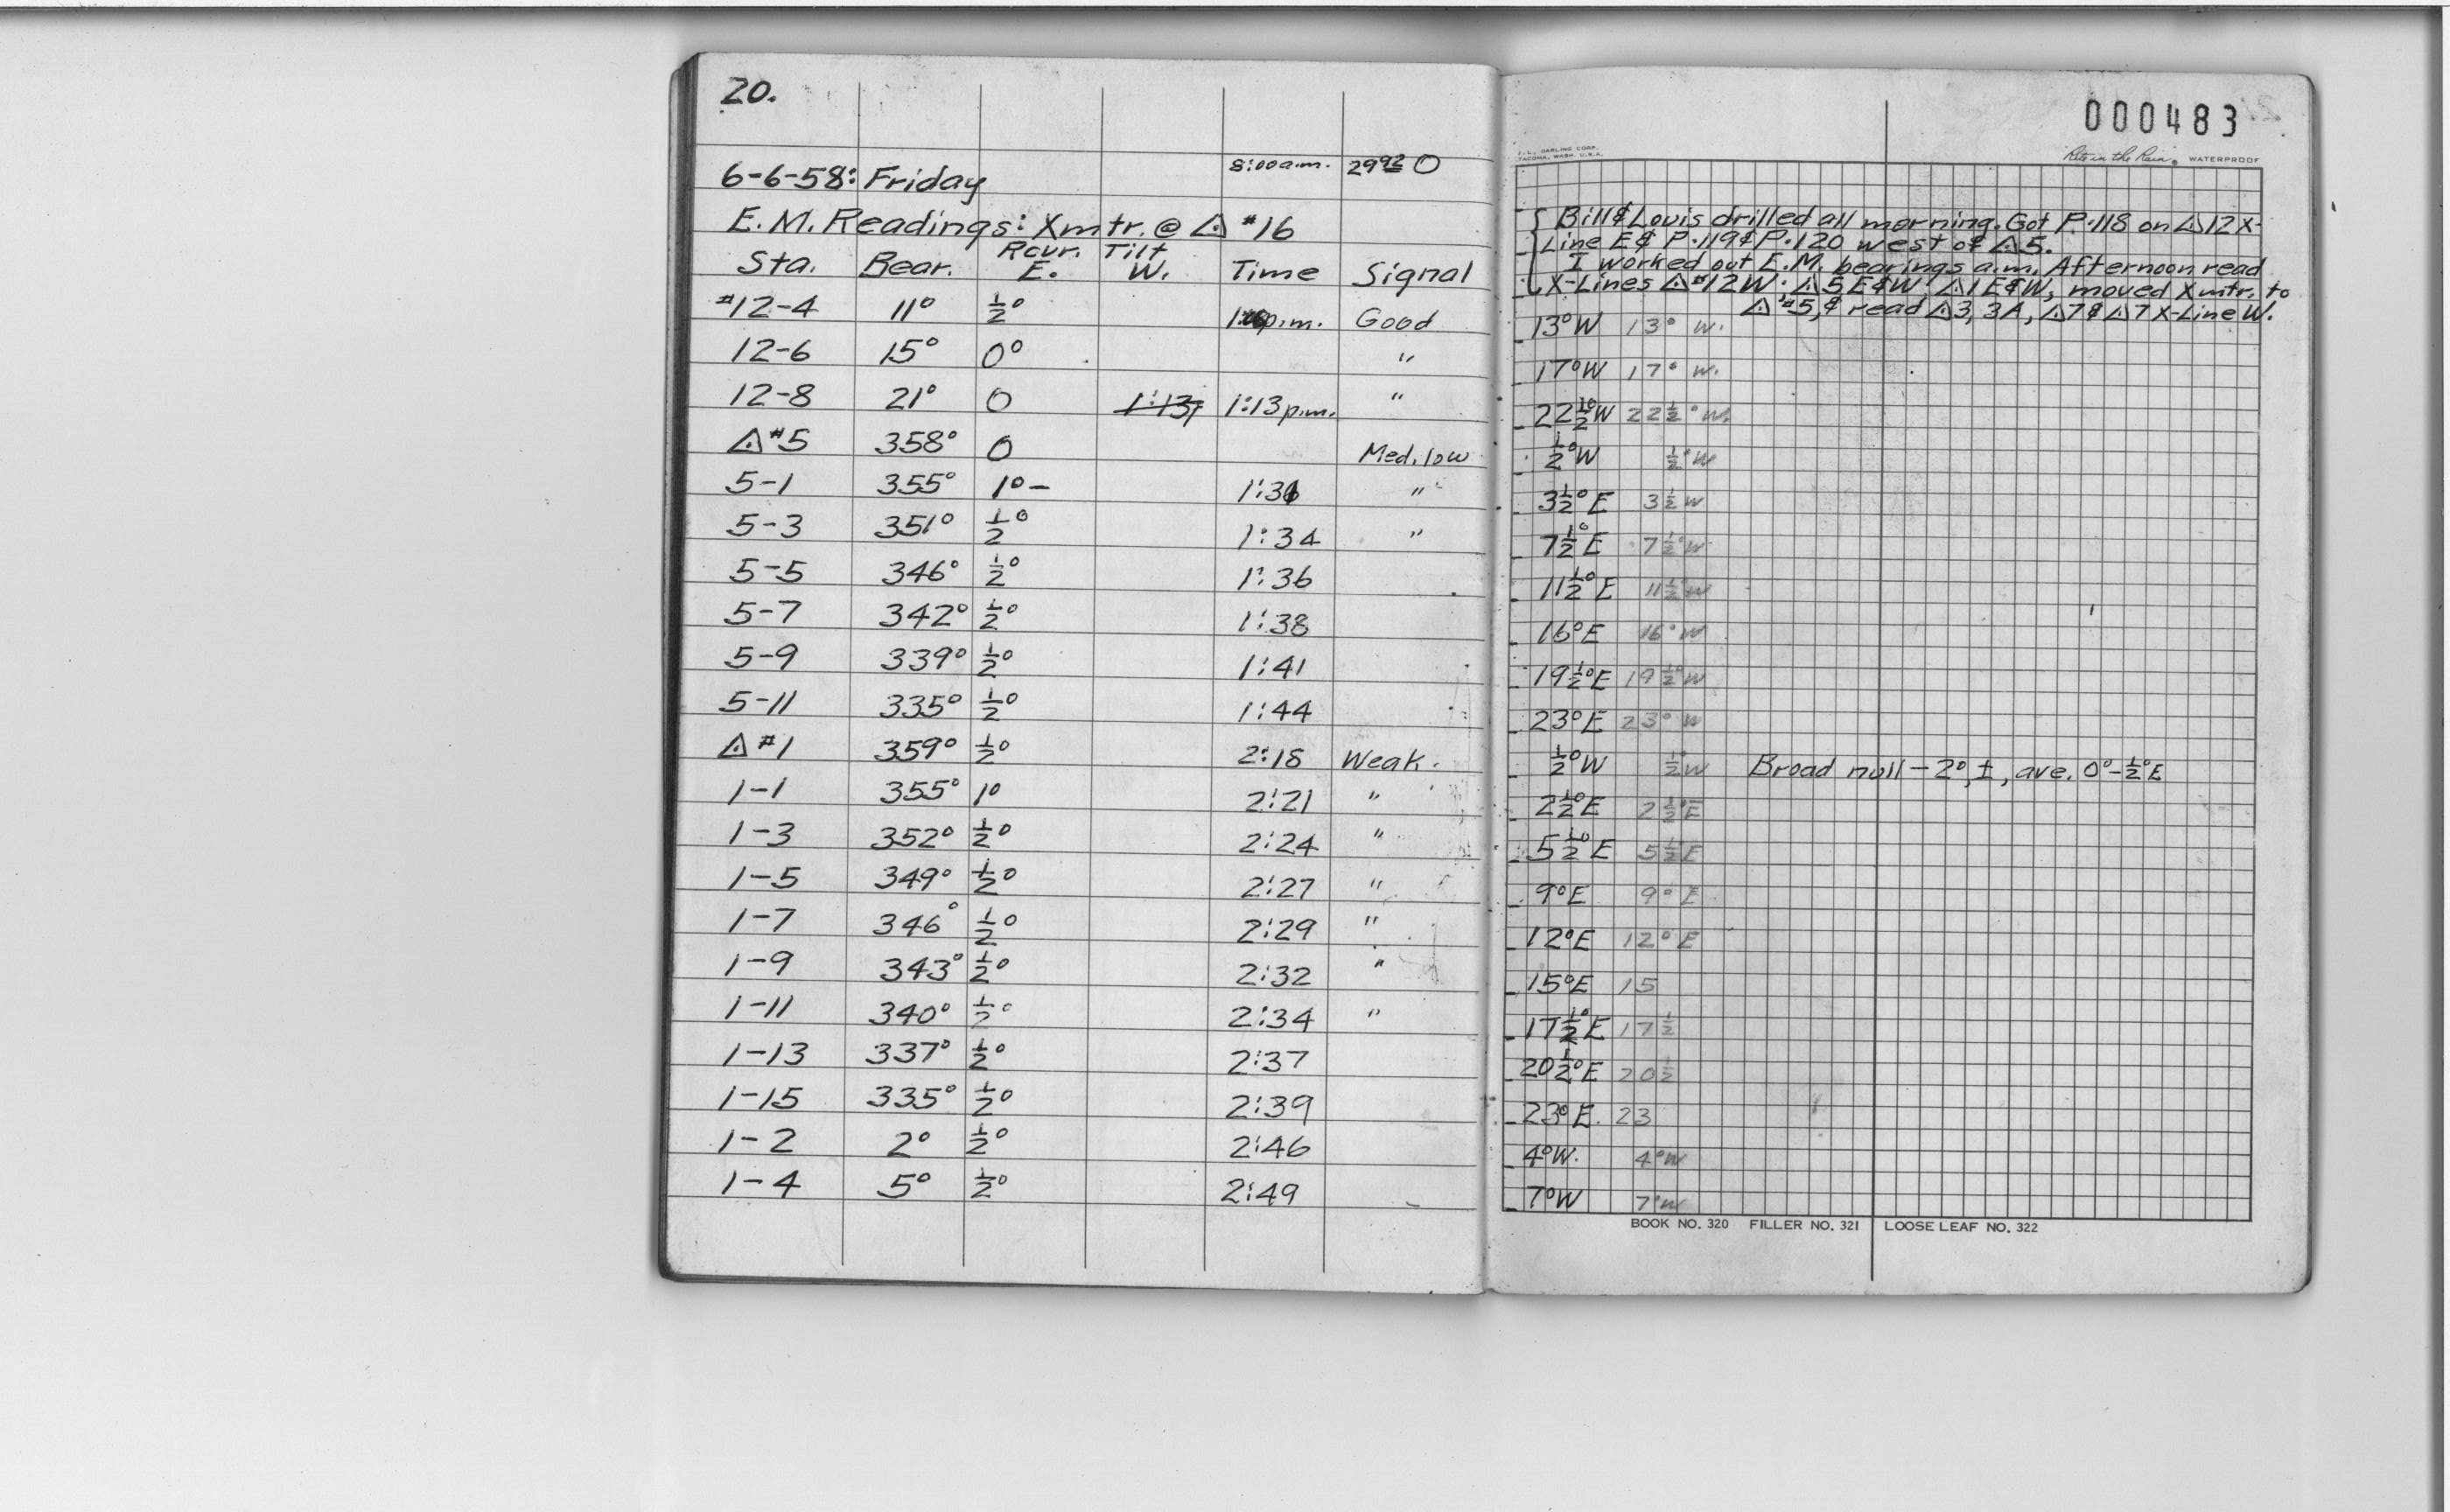 20.
6-6-58: Friday 8:00 a.m. 29 92 0
E.M. Readings: Xmtr. @ △ #16
Rcvr. Tilt
Sta. Bear. E. W. Time Signal
#12-4 11° ½° p.m. Good
12-6 15° 0° "
12-8 21° 0 1:13p 1:13 p.m. "
△ #5 358° 0 Med. low
5-1 355° 1°- 1:31 "
5-3 351° ½° 1:34 "
5-5 346° ½° 1:36
5-7 342° ½° 1:38
5-9 339° ½° 1:41
5-11 335° ½° 1:44
△ #1 359° ½° 2:18 Weak.
1-1 355° 1° 2:21 "
1-3 352° ½° 2:24 "
1-5 349° ½° 2:27 "
1-7 346° ½° 2:29 "
1-9 343° ½° 2:32 "
1-11 340° ½° 2:34 "
1-13 337° ½° 2:37
1-15 335° ½° 2:39
1-2 2° ½° 2:46
1-4 5° ½° 2:49
000483
J.L. DARLING CORP.
TACOMA, WASH. U.S.A. Rite in the Rain WATERPROOF
Bill & Louis drilled all morning. Got P.118 on △12 X-
Line E & P.119 & P.120 west of △5.
I worked out E.M. bearings a.m. Afternoon read
X-Lines △#12W; △5E&W; △1E&W, moved Xmtr. to
△#5, & read △3, 3A, △7 & △7 X-Line W.
13°W 13° W.
17°W 17° W.
22½°W 22½° W.
½°W ½°W
3½°E 3½ W
7½°E 7½°W
11½°E 11½°W
16°E 16° W
19½°E 19½°W
23°E 23° W
½°W ½°W Broad null - 2°, ±, ave. 0°-½°E
2½°E 2½°E
5½°E 5½°E
9°E 9° E
12°E 12° E
15°E 15
17½°E 17½
20½°E 20½
23°E. 23
4°W. 4°W
7°W 7°W
BOOK NO. 320 FILLER NO. 321 LOOSE LEAF NO. 322